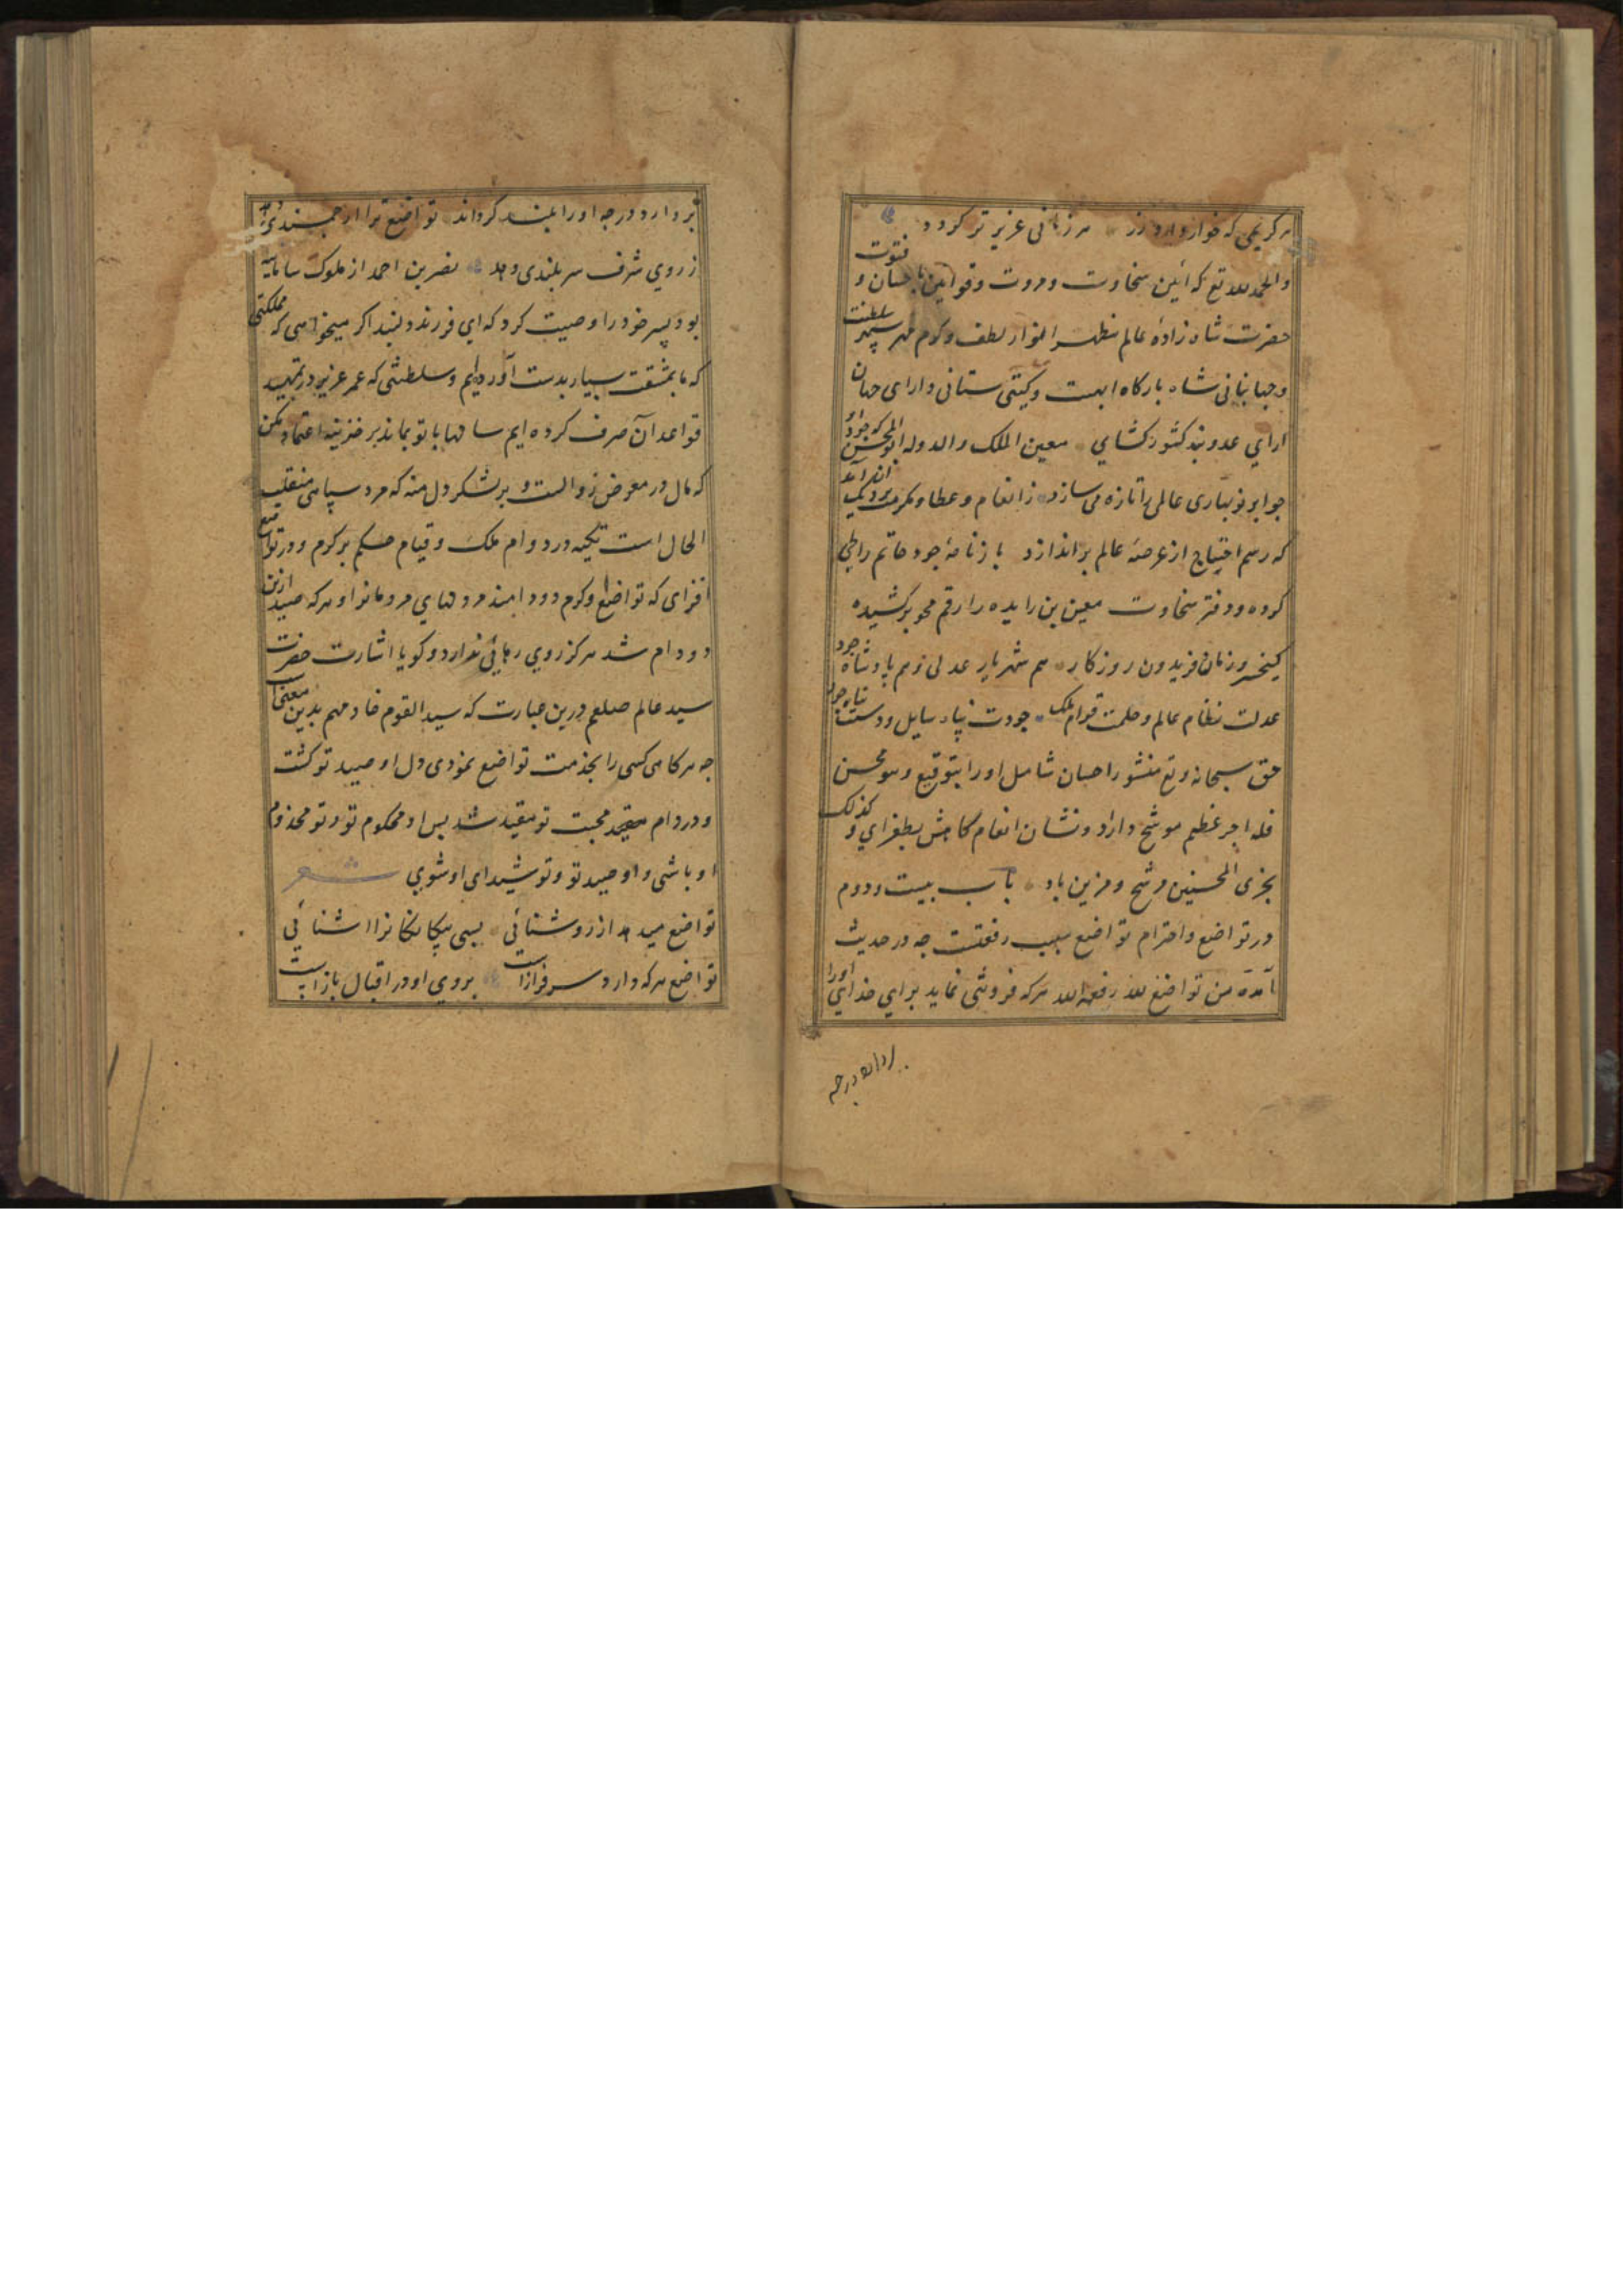 هر کریمی که خوار دارد زر هر زمانی عزیز تر کردد
والحمدلله تع که آئین سخاوت ومروت وقوانین احسان و فتوت
حضرت شاه زادهٔ عالم مظهر انوار لطف وکرم مهر سپهر سلطنت
وجهانبانی شاه بارکاه ابهت وکیتی ستانی دارای جهان
ارای عدوبند کشور کشای معین الملک والدوله ابوالمحسن که جود او
جو ابر نوبهاری عالمی را تازه می سازد زانعام وعطا ومکرمت
که رسم احتیاج از عرصهٔ عالم براندازد بازنامهٔ جود حاتم را طی
کرده ودفتر سخاوت معین بن زایده را رقم محو برکشیده
کیخسرو زمان فریدون روزکار هم شهریار عدلی وهم پادشاه جود
عدلت نظام عالم وحلمت قوام ملک جودت پناه سایل ودستت
حق سبحانه وتع منشور احسان شامل اورا بتوقیع وهو محسن
فله اجر عظیم موشح داراد ونشان انعام کاملش بطغرای و کذلک
نجزی المحسنین مرشح ومزین باد باب بیست ودوم
در تواضع واحترام تواضع سبب رفعتست جه در حدیث
آمده من تواضع لله رفعه الله هرکه فروتنی نماید برای خدای اورا
بردارد ودرجه
بردارد ودرجه اورا بلند کرداند تواضع ترا ارجمندی دهد
زروی شرف سربلندی دهد نصر بن احمد از ملوک سامانیه
بود پسر خود را وصیت کرد که ای فرزند دلبند اکر میخواهی که مملکتی
که ما بمشقت بسیار بدست آورده‌ایم وسلطنتی که عمر عزیز در تمهید
قواعد آن صرف کرده ایم سالها با تو بماند بر خزینه اعتماد مکن
که مال در معرض زوالست و بر لشکر دل منه که مرد سپاهی منقلب
الحال است تکیه در دوام ملک وقیام حکم بر کرم ودر تواضع
افزای که تواضع وکرم دو دامند مر دلهای مردمانرا وهرکه صید ازین
دو دام شد هرکز روی رهائی ندارد وکویا اشارت حضرت
سید عالم صلعم درین عبارت که سید القوم خادمهم بدین معنی است
جه هرکاهی کسی را بخدمت تواضع نمودی دل او صید تو کشت
ودر دام محبت تو مقید شد پس او محکوم تو وتو مخدوم
او باشی واو صید تو وتو شیدای او شوی شعر
تواضع میدهد از روشنائی بسی بیکانکانرا اشنائی
تواضع هرکه دارد سرفرازاست بروی او در اقبال بازاست